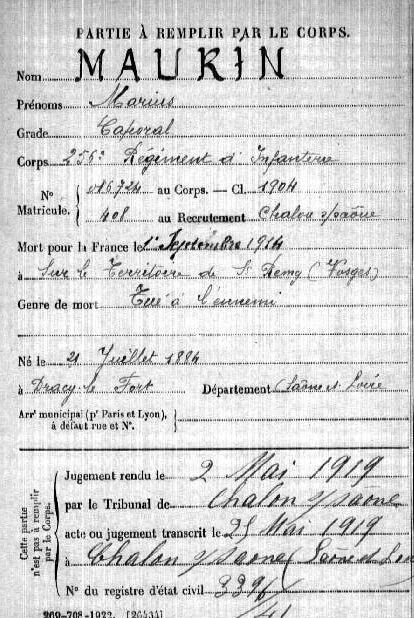 PARTIE À REMPLIR PAR LE CORPS.
Nom MAURIN
Prénoms Marius
Grade Caporal
Corps 256e Régiment d'Infanterie
N° Matricule. { 016724 au Corps. — Cl. 1904
408 au Recrutement Chalon s/saône
Mort pour la France le 1er Septembre 1914
à Sur le Territoire de St Remy (Vosges)
Genre de mort Tué à l'ennemi
Né le 21 Juillet 1884
à Dracy-le Fort Département Saône et Loire
Arrt municipal (pr Paris et Lyon), à défaut rue et N°.
Cette partie n'est pas à remplir par le Corps.
Jugement rendu le 2 Mai 1919
par le Tribunal de Chalon s/saône
acte ou jugement transcrit le 25 Mai 1919
à Chalon s/saone (Saone et
N° du registre d'état civil
269-708-1922. [26434]